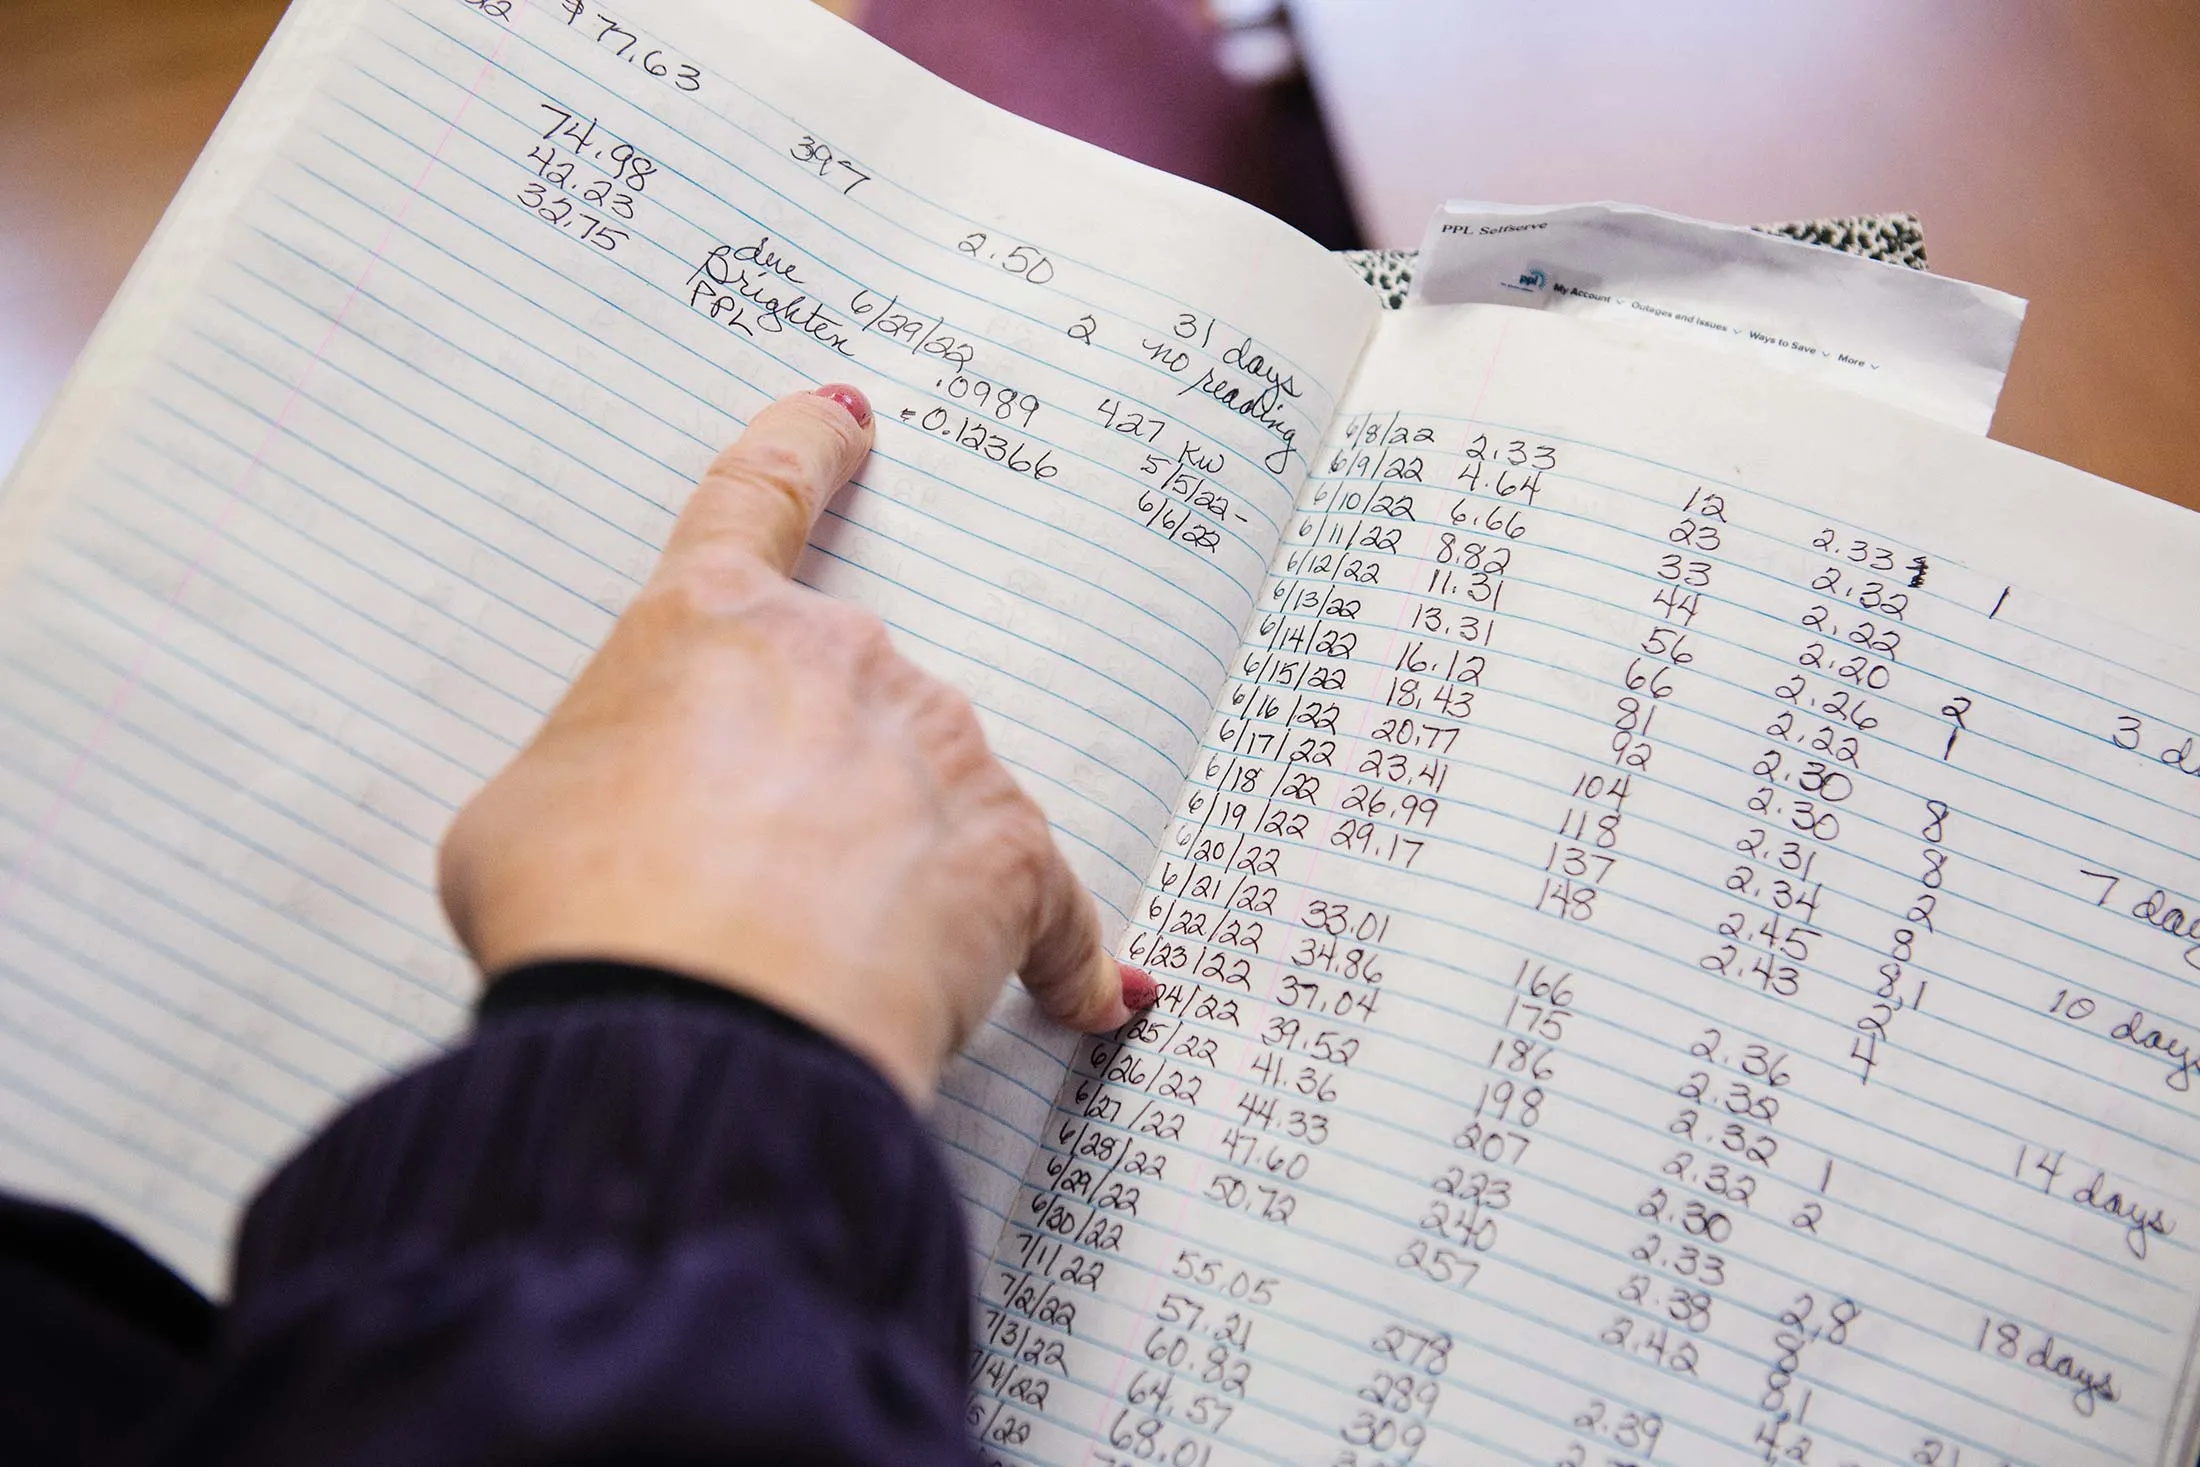 22 $77.63 397 2.50 31 days
2 no reading
74.98 due 6/29/22 427 KW
42.23 Brighten .0989 5/5/22-
32.75 PPL = 0.12366 6/6/22
PPL Selfserve
ppl My Account Outages and Issues Ways to Save More
6/8/22 2.33 12 2.33 1
6/9/22 4.64 23 2.32
6/10/22 6.66 33 2.22 3 d
6/11/22 8.82 44 2.20 2
6/12/22 11.31 56 2.26 1
6/13/22 13.31 66 2.22
6/14/22 16.12 81 2.30 8 7 day
6/15/22 18.43 92 2.30 8
6/16/22 20.77 104 2.31 2
6/17/22 23.41 118 2.34 8 10 days
6/18/22 26.99 137 2.45 8,1
6/19/22 29.17 148 2.43 2
6/20/22 4
6/21/22 33.01 166 2.36 14 days
6/22/22 34.86 175 2.32
6/23/22 37.04 186 2.32 1
24/22 39.52 198 2.32 2
25/22 41.36 207 2.30 18 days
6/26/22 44.33 223 2.33 2,8
6/27/22 47.60 240 2.38 8
6/28/22 50.72 257 2.42 8,1 21
6/29/22 4,2
6/30/22 55.05 278 2.39
7/1/22 57.21 289
7/2/22 60.82 309
7/3/22 64.57
7/4/22 68.01
5/22